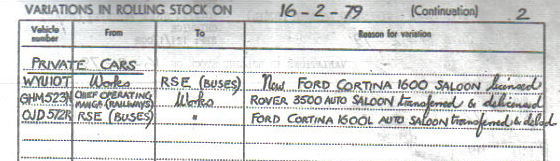 VARIATIONS IN ROLLING STOCK ON 16-2-79 (Continuation) 2
Vehicle number From To Reason for variation
PRIVATE CARS
WYU10T Works RSE (BUSES) New FORD CORTINA 1600 SALOON licensed
GHM523N CHIEF OPERATING MANGR (RAILWAYS) Works ROVER 3500 AUTO SALOON transferred & delicensed
OJD572R RSE (BUSES) " FORD CORTINA 1600L AUTO SALOON transferred & delcd